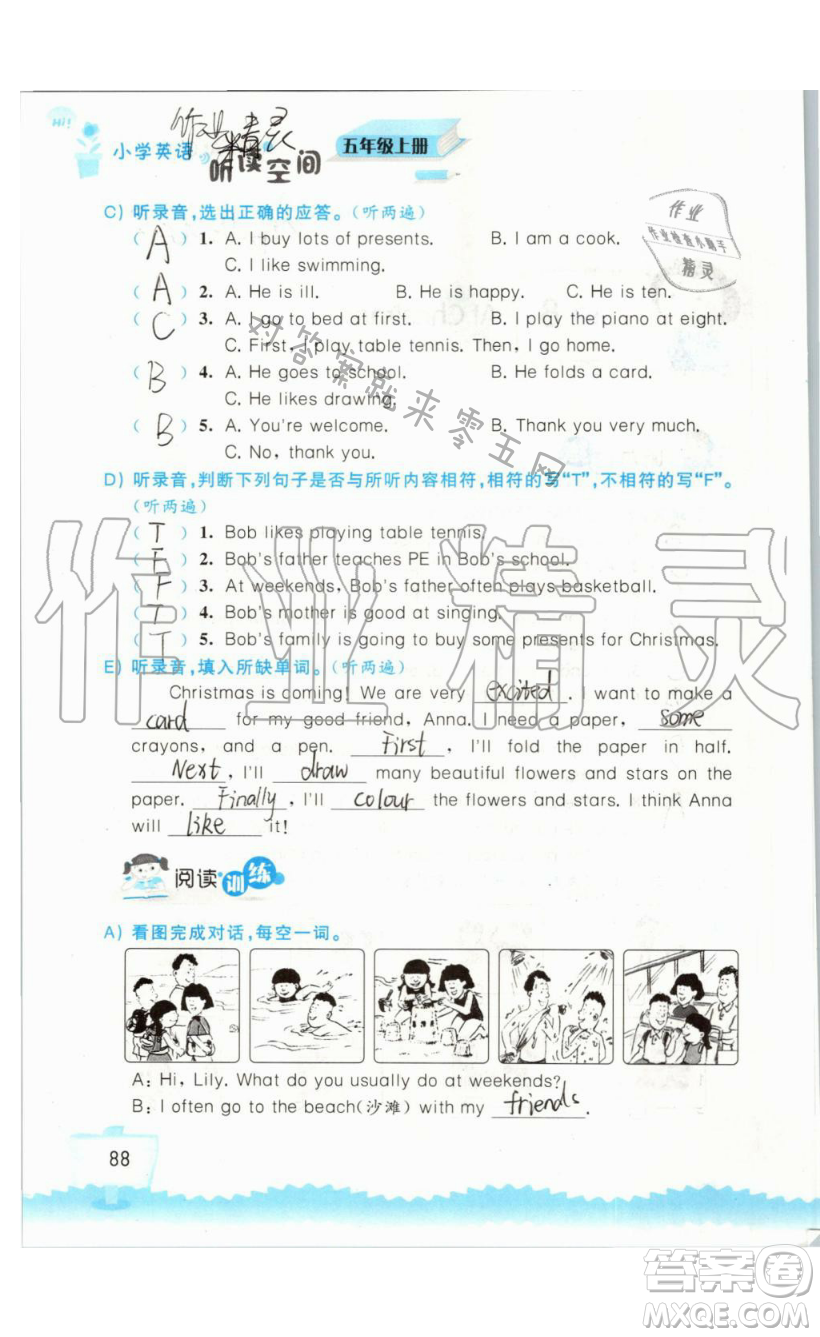 Hi!
作业精灵
小学英语 听读空间 五年级上册
C) 听录音,选出正确的应答。(听两遍)
( A ) 1. A. I buy lots of presents. B. I am a cook.
C. I like swimming.
( A ) 2. A. He is ill. B. He is happy. C. He is ten.
( C ) 3. A. I go to bed at first. B. I play the piano at eight.
C. First, I play table tennis. Then, I go home.
( B ) 4. A. He goes to school. B. He folds a card.
C. He likes drawing.
( B ) 5. A. You're welcome. B. Thank you very much.
C. No, thank you.
D) 听录音,判断下列句子是否与所听内容相符,相符的写“T”,不相符的写“F”。
(听两遍)
( T ) 1. Bob likes playing table tennis.
( F ) 2. Bob's father teaches PE in Bob's school.
( F ) 3. At weekends, Bob's father often plays basketball.
( T ) 4. Bob's mother is good at singing.
( T ) 5. Bob's family is going to buy some presents for Christmas.
E) 听录音,填入所缺单词。(听两遍)
Christmas is coming! We are very excited. I want to make a
card for my good friend, Anna. I need a paper, some
crayons, and a pen. First, I'll fold the paper in half.
Next, I'll draw many beautiful flowers and stars on the
paper. Finally, I'll colour the flowers and stars. I think Anna
will like it!
阅读训练
A) 看图完成对话,每空一词。
A: Hi, Lily. What do you usually do at weekends?
B: I often go to the beach(沙滩) with my friends.
88
作业
作业检查小助手
精灵
对答案就来零五网
作业精灵
答案卷
MXQE.COM